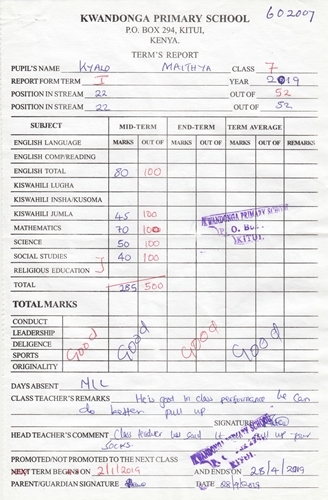 602007
KWANDONGA PRIMARY SCHOOL
P.O. BOX 294, KITUI,
KENYA.
TERM'S REPORT
PUPIL'S NAME KYALO MAITHYA CLASS 7
REPORT FORM TERM I YEAR 2019
POSITION IN STREAM 22 OUT OF 52
POSITION IN STREAM 22 OUT OF 52
SUBJECT MID-TERM END-TERM TERM AVERAGE
MARKS OUT OF MARKS OUT OF MARKS OUT OF REMARKS
ENGLISH LANGUAGE
ENGLISH COMP/READING
ENGLISH TOTAL 80 100
KISWAHILI LUGHA
KISWAHILI INSHA/KUSOMA
KISWAHILI JUMLA 45 100
MATHEMATICS 70 100
SCIENCE 50 100
SOCIAL STUDIES 40 100
RELIGIOUS EDUCATION
TOTAL 285 500
KWANDONGA PRIMARY SCHOOL
P. O. Box
KITUI.
TOTAL MARKS
CONDUCT
LEADERSHIP
DELIGENCE
SPORTS
ORIGINALITY
Good Good Good Good
DAYS ABSENT NIL
CLASS TEACHER'S REMARKS He's good in class performance he can
do better pull up
SIGNATURE
HEAD TEACHER'S COMMENT Class teacher has said it pull up your
socks.
KWANDONGA PRIMARY SCHOOL
KITUI.
PROMOTED/NOT PROMOTED TO THE NEXT CLASS
NEXT TERM BEGINS ON 2/1/2019 AND ENDS ON 28/4/2019
PARENT/GUARDIAN SIGNATURE DATE